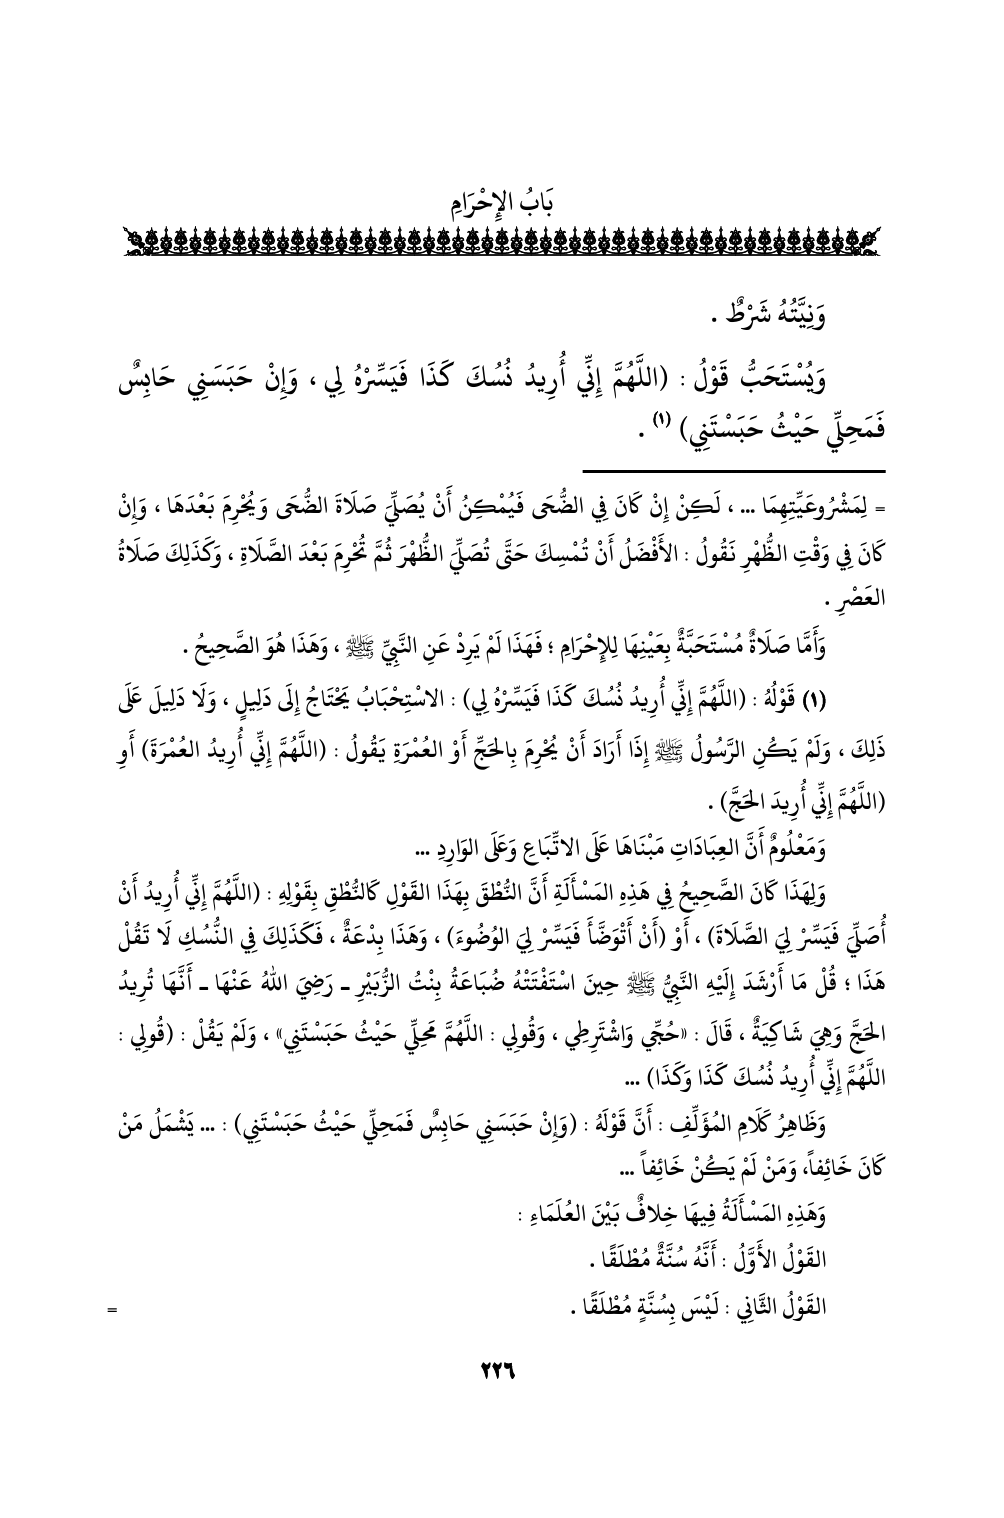 بَابُ الإِحْرَامِ
وَنِيَّتُهُ شَرْطٌ .
وَيُسْتَحَبُّ قَوْلُ : (اللَّهُمَّ إِنِّي أُرِيدُ نُسُكَ كَذَا فَيَسِّرْهُ لِي ، وَإِنْ حَبَسَنِي حَابِسٌ
فَمَحِلِّي حَيْثُ حَبَسْتَنِي) (١) .
= لِمَشْرُوعَيِّتِهِمَا ... ، لَكِنْ إِنْ كَانَ فِي الضُّحَى فَيُمْكِنُ أَنْ يُصَلِّيَ صَلَاةَ الضُّحَى وَيُحْرِمَ بَعْدَهَا ، وَإِنْ
كَانَ فِي وَقْتِ الظُّهْرِ نَقُولُ : الأَفْضَلُ أَنْ تُمْسِكَ حَتَّى تُصَلِّيَ الظُّهْرَ ثُمَّ تُحْرِمَ بَعْدَ الصَّلَاةِ ، وَكَذَلِكَ صَلَاةُ
العَصْرِ .
وَأَمَّا صَلَاةٌ مُسْتَحَبَّةٌ بِعَيْنِهَا لِلإِحْرَامِ ؛ فَهَذَا لَمْ يَرِدْ عَنِ النَّبِيِّ ﷺ ، وَهَذَا هُوَ الصَّحِيحُ .
(١) قَوْلُهُ : (اللَّهُمَّ إِنِّي أُرِيدُ نُسُكَ كَذَا فَيَسِّرْهُ لِي) : الاسْتِحْبَابُ يَحْتَاجُ إِلَى دَلِيلٍ ، وَلَا دَلِيلَ عَلَى
ذَلِكَ ، وَلَمْ يَكُنِ الرَّسُولُ ﷺ إِذَا أَرَادَ أَنْ يُحْرِمَ بِالحَجِّ أَوْ العُمْرَةِ يَقُولُ : (اللَّهُمَّ إِنِّي أُرِيدُ العُمْرَةَ) أَوِ
(اللَّهُمَّ إِنِّي أُرِيدَ الحَجَّ) .
وَمَعْلُومٌ أَنَّ العِبَادَاتِ مَبْنَاهَا عَلَى الاتِّبَاعِ وَعَلَى الوَارِدِ ...
وَلِهَذَا كَانَ الصَّحِيحُ فِي هَذِهِ المَسْأَلَةِ أَنَّ النُّطْقَ بِهَذَا القَوْلِ كَالنُّطْقِ بِقَوْلِهِ : (اللَّهُمَّ إِنِّي أُرِيدُ أَنْ
أُصَلِّيَ فَيَسِّرْ لِيَ الصَّلَاةَ) ، أَوْ (أَنْ أَتْوَضَّأَ فَيَسِّرْ لِيَ الوُضُوءَ) ، وَهَذَا بِدْعَةٌ ، فَكَذَلِكَ فِي النُّسُكِ لَا تَقُلْ
هَذَا ؛ قُلْ مَا أَرْشَدَ إِلَيْهِ النَّبِيُّ ﷺ حِينَ اسْتَفْتَتْهُ ضُبَاعَةُ بِنْتُ الزُّبَيْرِ ـ رَضِيَ اللهُ عَنْهَا ـ أَنَّهَا تُرِيدُ
الحَجَّ وَهِيَ شَاكِيَةٌ ، قَالَ : «حُجِّي وَاشْتَرِطِي ، وَقُولِي : اللَّهُمَّ مَحِلِّي حَيْثُ حَبَسْتَنِي» ، وَلَمْ يَقُلْ : (قُولِي :
اللَّهُمَّ إِنِّي أُرِيدُ نُسُكَ كَذَا وَكَذَا) ...
وَظَاهِرُ كَلَامِ المُؤَلِّفِ : أَنَّ قَوْلَهُ : (وَإِنْ حَبَسَنِي حَابِسٌ فَمَحِلِّي حَيْثُ حَبَسْتَنِي) : ... يَشْمَلُ مَنْ
كَانَ خَائِفاً، وَمَنْ لَمْ يَكُنْ خَائِفاً ...
وَهَذِهِ المَسْأَلَةُ فِيهَا خِلافٌ بَيْنَ العُلَمَاءِ :
القَوْلُ الأَوَّلُ : أَنَّهُ سُنَّةٌ مُطْلَقًا .
القَوْلُ الثَّانِي : لَيْسَ بِسُنَّةٍ مُطْلَقًا . =
٢٢٦